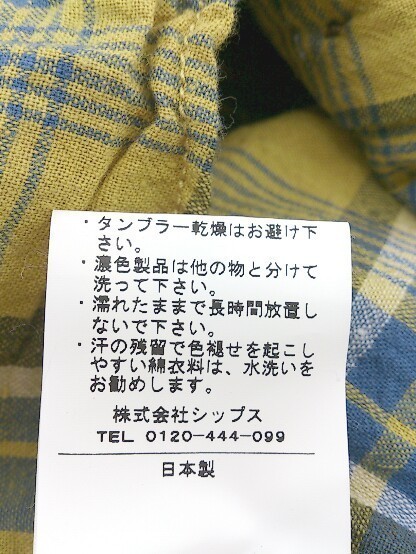 ・タンブラー乾燥はお避け下
さい。
・濃色製品は他の物と分けて
洗って下さい。
・濡れたままで長時間放置し
ないで下さい。
・汗の残留で色褪せを起こし
やすい綿衣料は、水洗いを
お勧めします。
株式会社シップス
TEL 0120-444-099
日本製